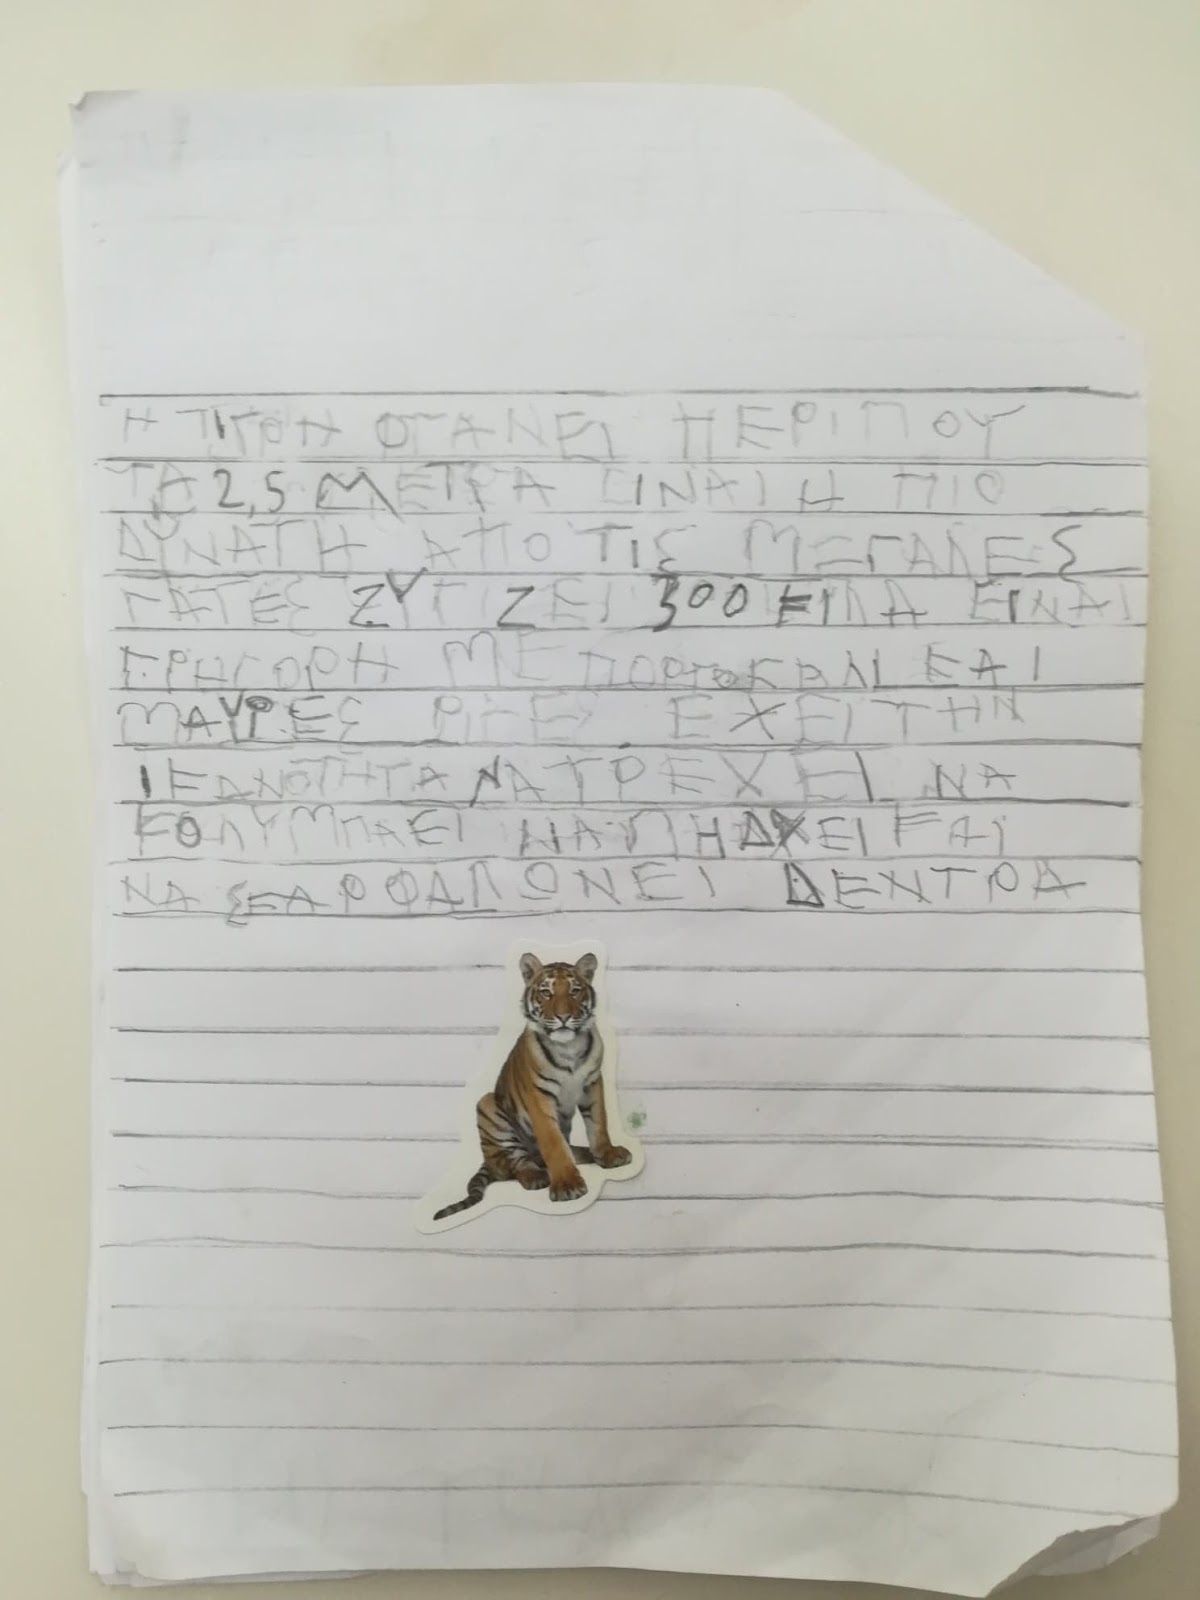 Η ΤΙΓΡΗ ΦΤΑΝΕΙ ΠΕΡΙΠΟΥ
ΤΑ 2,5 ΜΕΤΡΑ ΕΙΝΑΙ Η ΠΙΟ
ΔΥΝΑΤΗ ΑΠΟ ΤΙΣ ΜΕΓΑΛΕΣ
ΓΑΤΕΣ ΖΥΓΙΖΕΙ 300 ΚΙΛΑ ΕΙΝΑΙ
ΓΡΗΓΟΡΗ ΜΕ ΠΟΡΤΟΚΑΛΙ ΚΑΙ
ΜΑΥΡΕΣ ΡΙΓΕΣ ΕΧΕΙ ΤΗΝ
ΙΚΑΝΟΤΗΤΑ ΝΑ ΤΡΕΧΕΙ ΝΑ
ΚΟΛΥΜΠΑΕΙ ΝΑ ΠΗΔΑΕΙ ΚΑΙ
ΝΑ ΣΚΑΡΦΑΛΩΝΕΙ ΔΕΝΤΡΑ